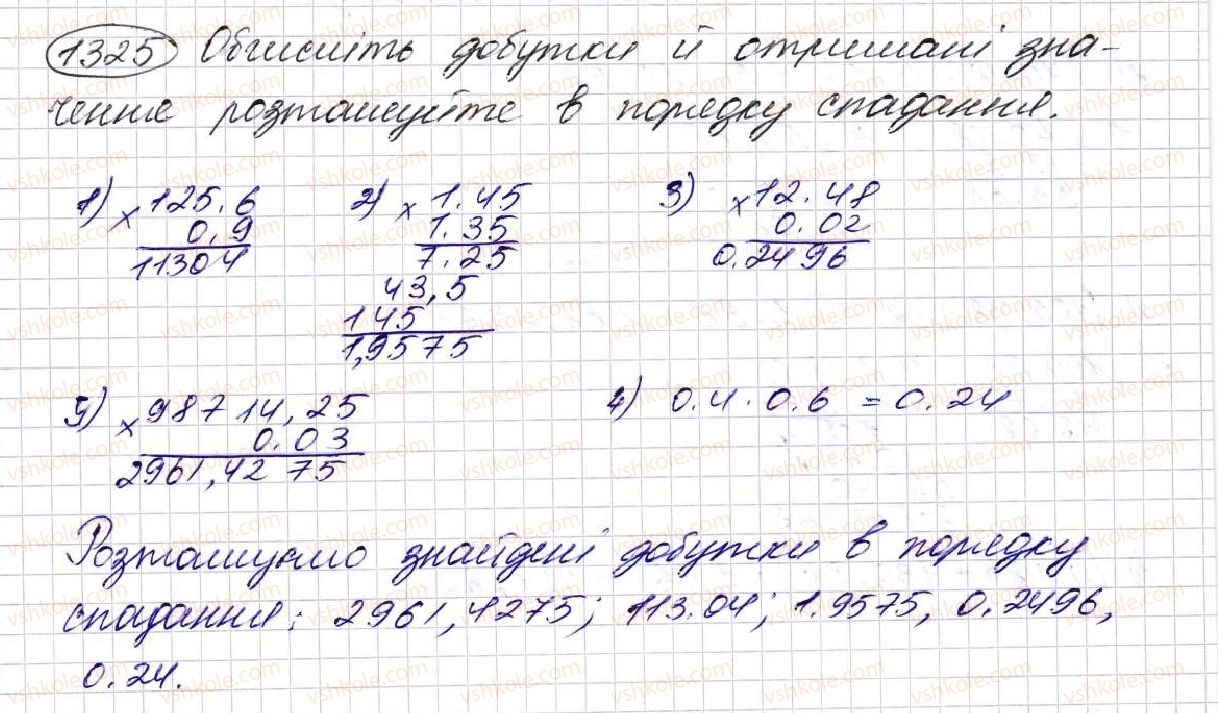 1325 Обчисліть добутки й отримані зна-
чення розташуйте в порядку спадання.
1) × 125.6
0,9
11304
2) × 1.45
1.35
7.25
43,5
145
1,9575
3) × 12.48
0.02
0.2496
5) × 98714,25
0.03
2961,4275
4) 0.4 · 0.6 = 0.24
Розташуємо знайдені добутки в порядку
спадання: 2961,4275; 113.04; 1.9575, 0.2496,
0.24.